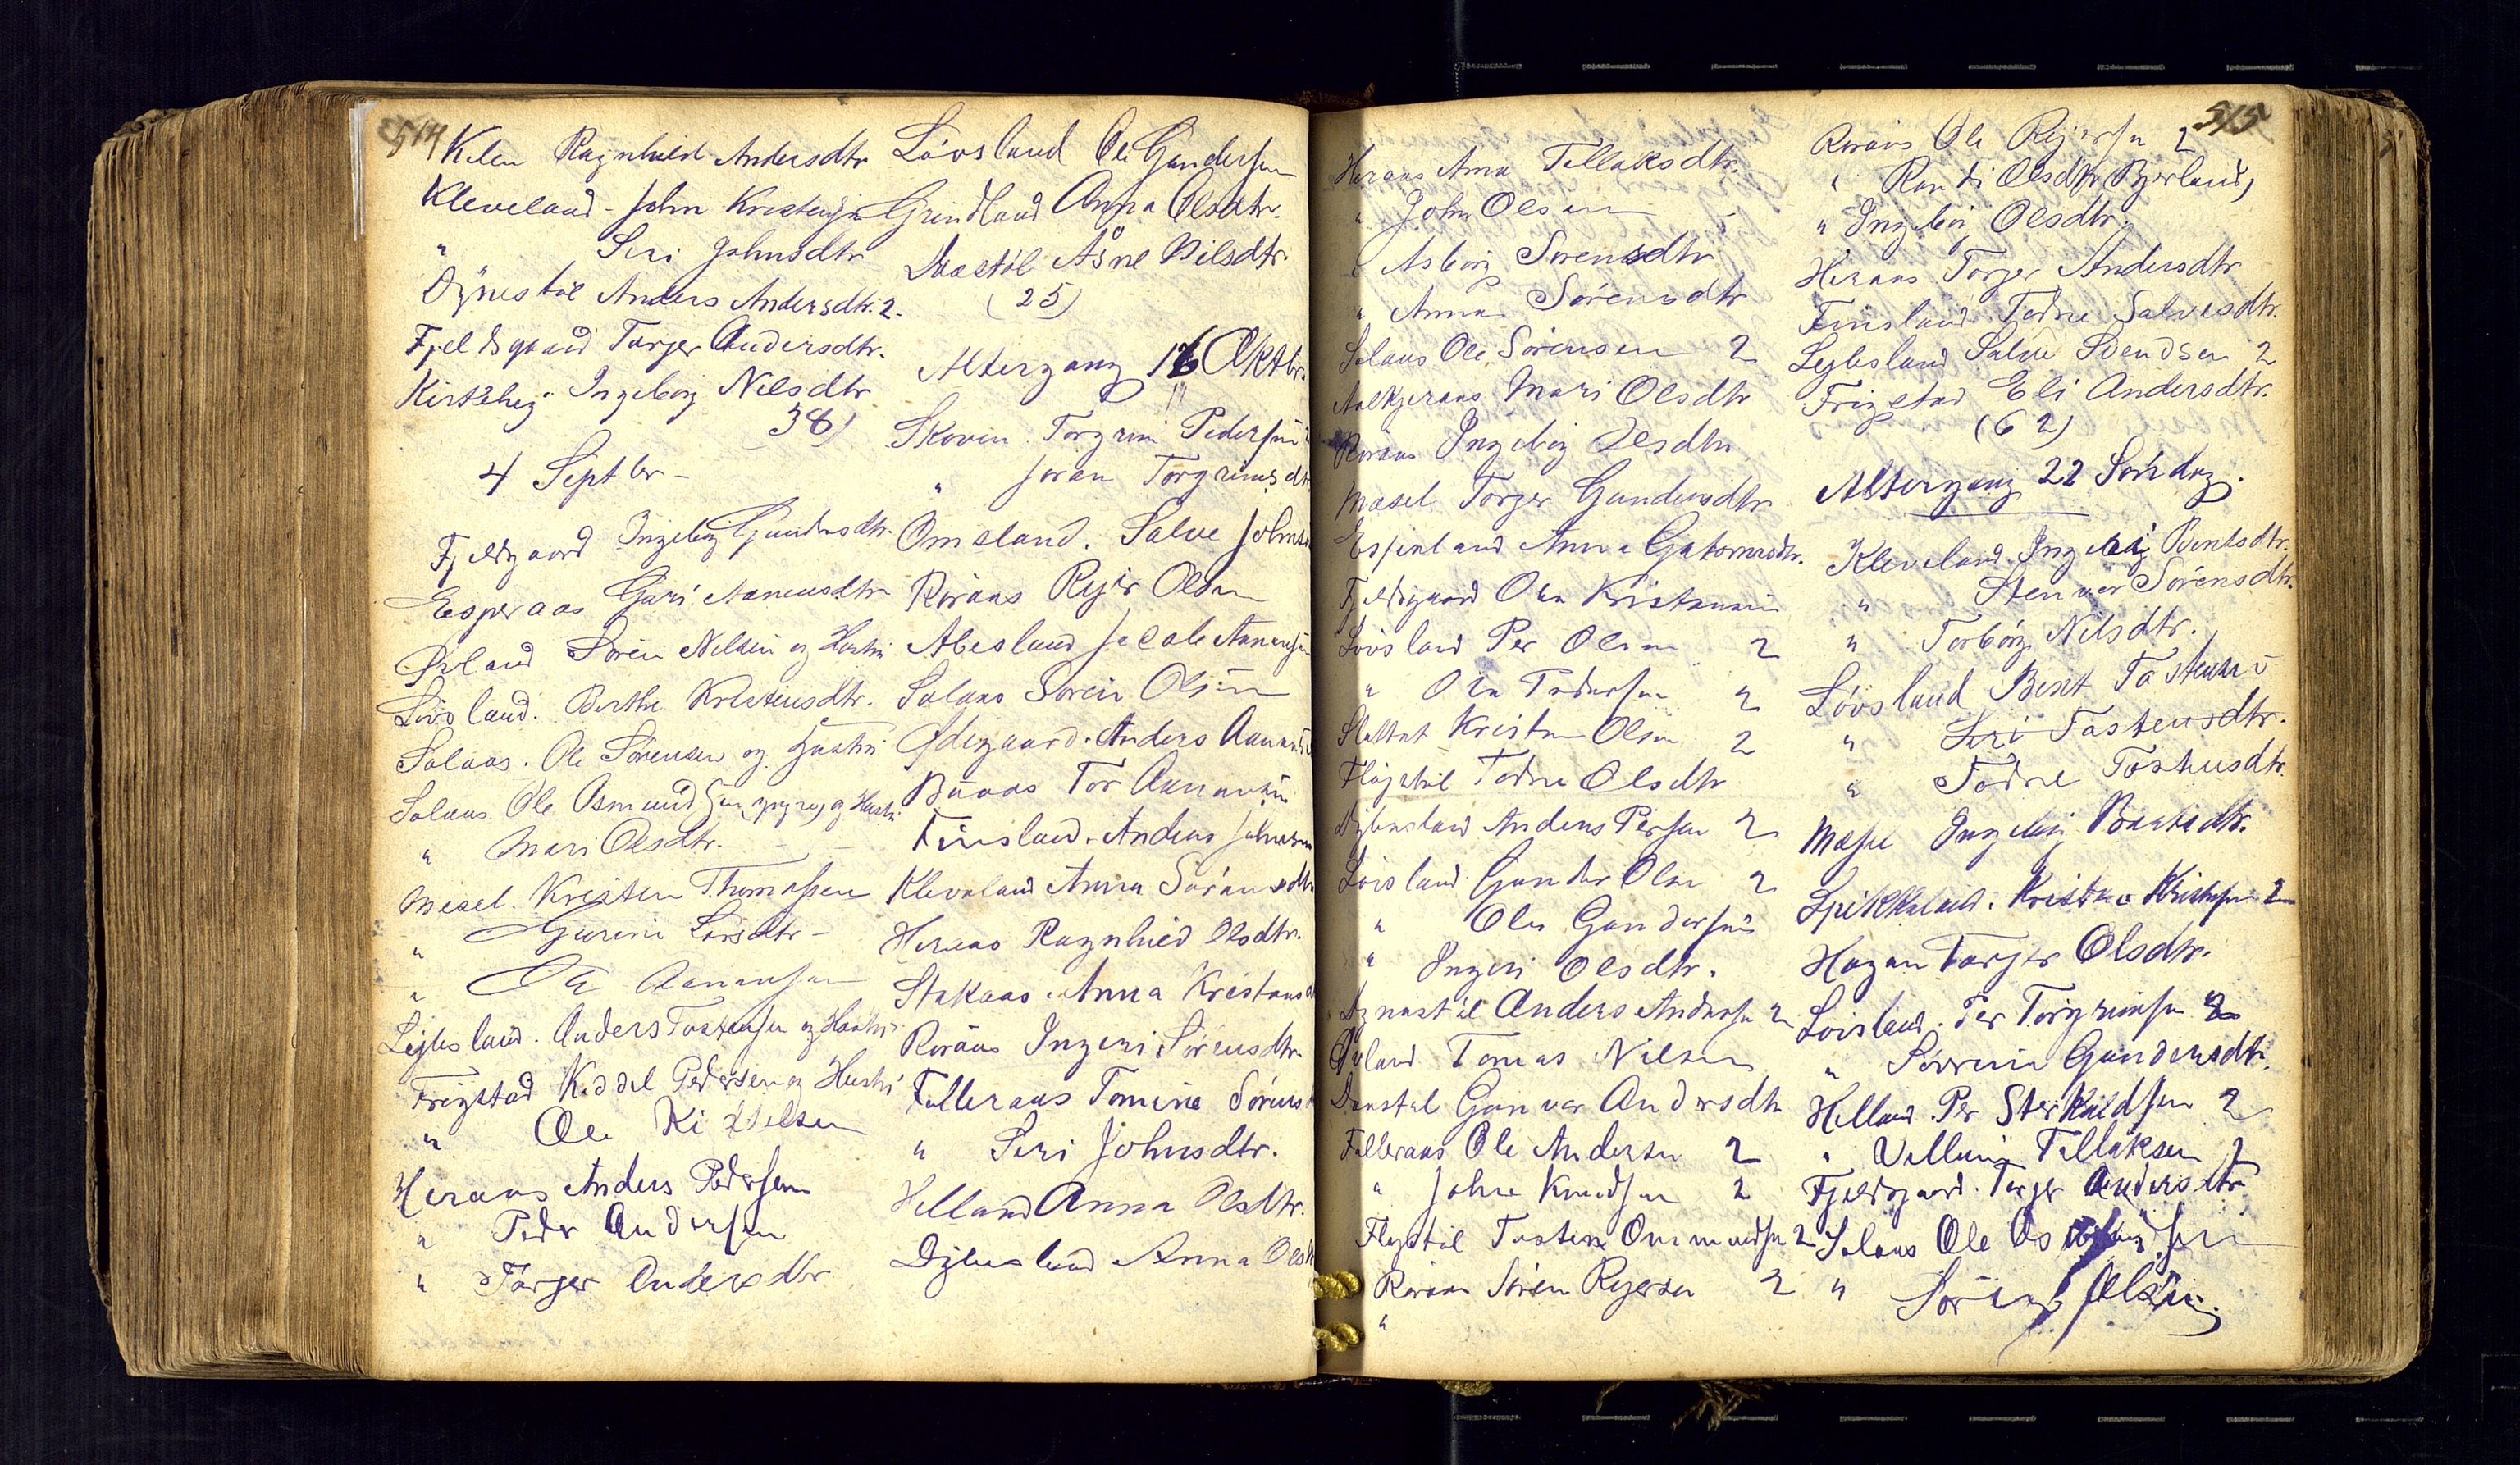 514
Kilen Ragnhild Andersdtr
Kleveland - John Kristensen
" Siri Johnsdtr
Dynestøl Anders Andersdtr. 2.
Fjeldsgaard Torger Andersdtr.
Kirkehej Ingeborg Nilsdtr
38)
4 Septbr -
Fjeldgaard Ingeborg Gundersdtr.
Esperaas Guri Aanensdtr
Øvland Sören Nilsen og Hustru
Lövsland. Berthe Kristensdtr.
Salaas. Ole Sörensen og Hustru
Salaas Ole Osmundsen og Hustru
" Mari Olsdtr. - -
Mesel. Kristen Thomassen
" Gurine Larsdtr -
" Ole Aanensen
Lejlesland. Anders Tostensen og Hustru
Frigstad Kiddel Pedersen og Hustru
" Ole Kiddelsen
Heraas Anders Pedersen
" Peder Andersen
" Torger Andersdtr
Lövsland Ole Gundersen
Grindland Anna Olsdtr.
Daastöl Åsne Nilsdtr.
(25)
Altergang 16 Oktbr.
Skoven Torgrim Pedersen
" Joran Torgrimsdtr
Omsland. Salve Johns
Röraas Rejer Olsen
Abesland Jacob Aanensen
Salaas Sören Olsen
Ødegaard. Anders Aanens
Buaas Tor Aanensen
Finsland. Anders Johnsen
Kleveland Anna Sörensdtr
Heraas Ragnhild Olsdtr.
Stakaas. Anna Kristens
Röraas Ingeri Sörensdtr
Falleraas Tomine Sörens
" Siri Johnsdtr.
Helland Anna Olsdtr.
Djbesland Anna Olsdt
515
Heraas Anna Tellaksdtr.
" John Olsen
" Asborg Sorensdtr
" Anna Sörensdtr
Salaas Ole Sörensen 2
Mari Olsdtr
Röraas Ingeborg Olsdtr
Mæsel Torger Gundersdtr
Espenland Anna Guttormsdtr.
Fjeldsgaard Ola Kristensen
Lövsland Per Olsen 2
" Ola Pedersen 2
Slettet Kristen Olsen 2
Fløystøl Todne Olsdtr
Djbesland Anders Persen 2
Lövsland Gunder Olsen 2
" Ole Gundersen
" Ingeri Olsdtr.
Dynestøl Anders Andersen 2
Øvland Tomas Nilsen
Daastøl Gunvor Andersdtr
Falleraas Ole Andersen 2
" John Knudsen 2
Fløystöl Tosten Ommundsen 2
Röraas Sören Rejersen 2
"
Röraas Ole Rejersen 2
" Randi Olsdtr, Bjerland,
" Ingeborg Olsdtr.
Heraas Torger Andersdtr
Finsland Todne Salvesdtr.
Lejlesland Salve Svendsen 2
Frigstad Eli Andersdtr.
(62)
Altergang 22 Söndag.
Kleveland. Ingeborg Bentsdtr.
" Stenvor Sörensdtr.
" Torborg Nilsdtr.
Lövsland Bent Tostensen
" Siri Tostensdtr.
" Todne Tostensdtr.
Mæsel Ingeborg Bentsdtr.
Spikkeland. Kristen Kristensen 2
Hagen Torger Olsdtr.
Lövsland. Per Torgrimsen 2
" Sörrine Gundersdtr.
Helland. Per Sterkeldsen 2
" Vellum Tellaksen 2
Fjeldsgaard. Torger Andersdtr
Salaas Ole Osmundsen
" Sören Olsen.